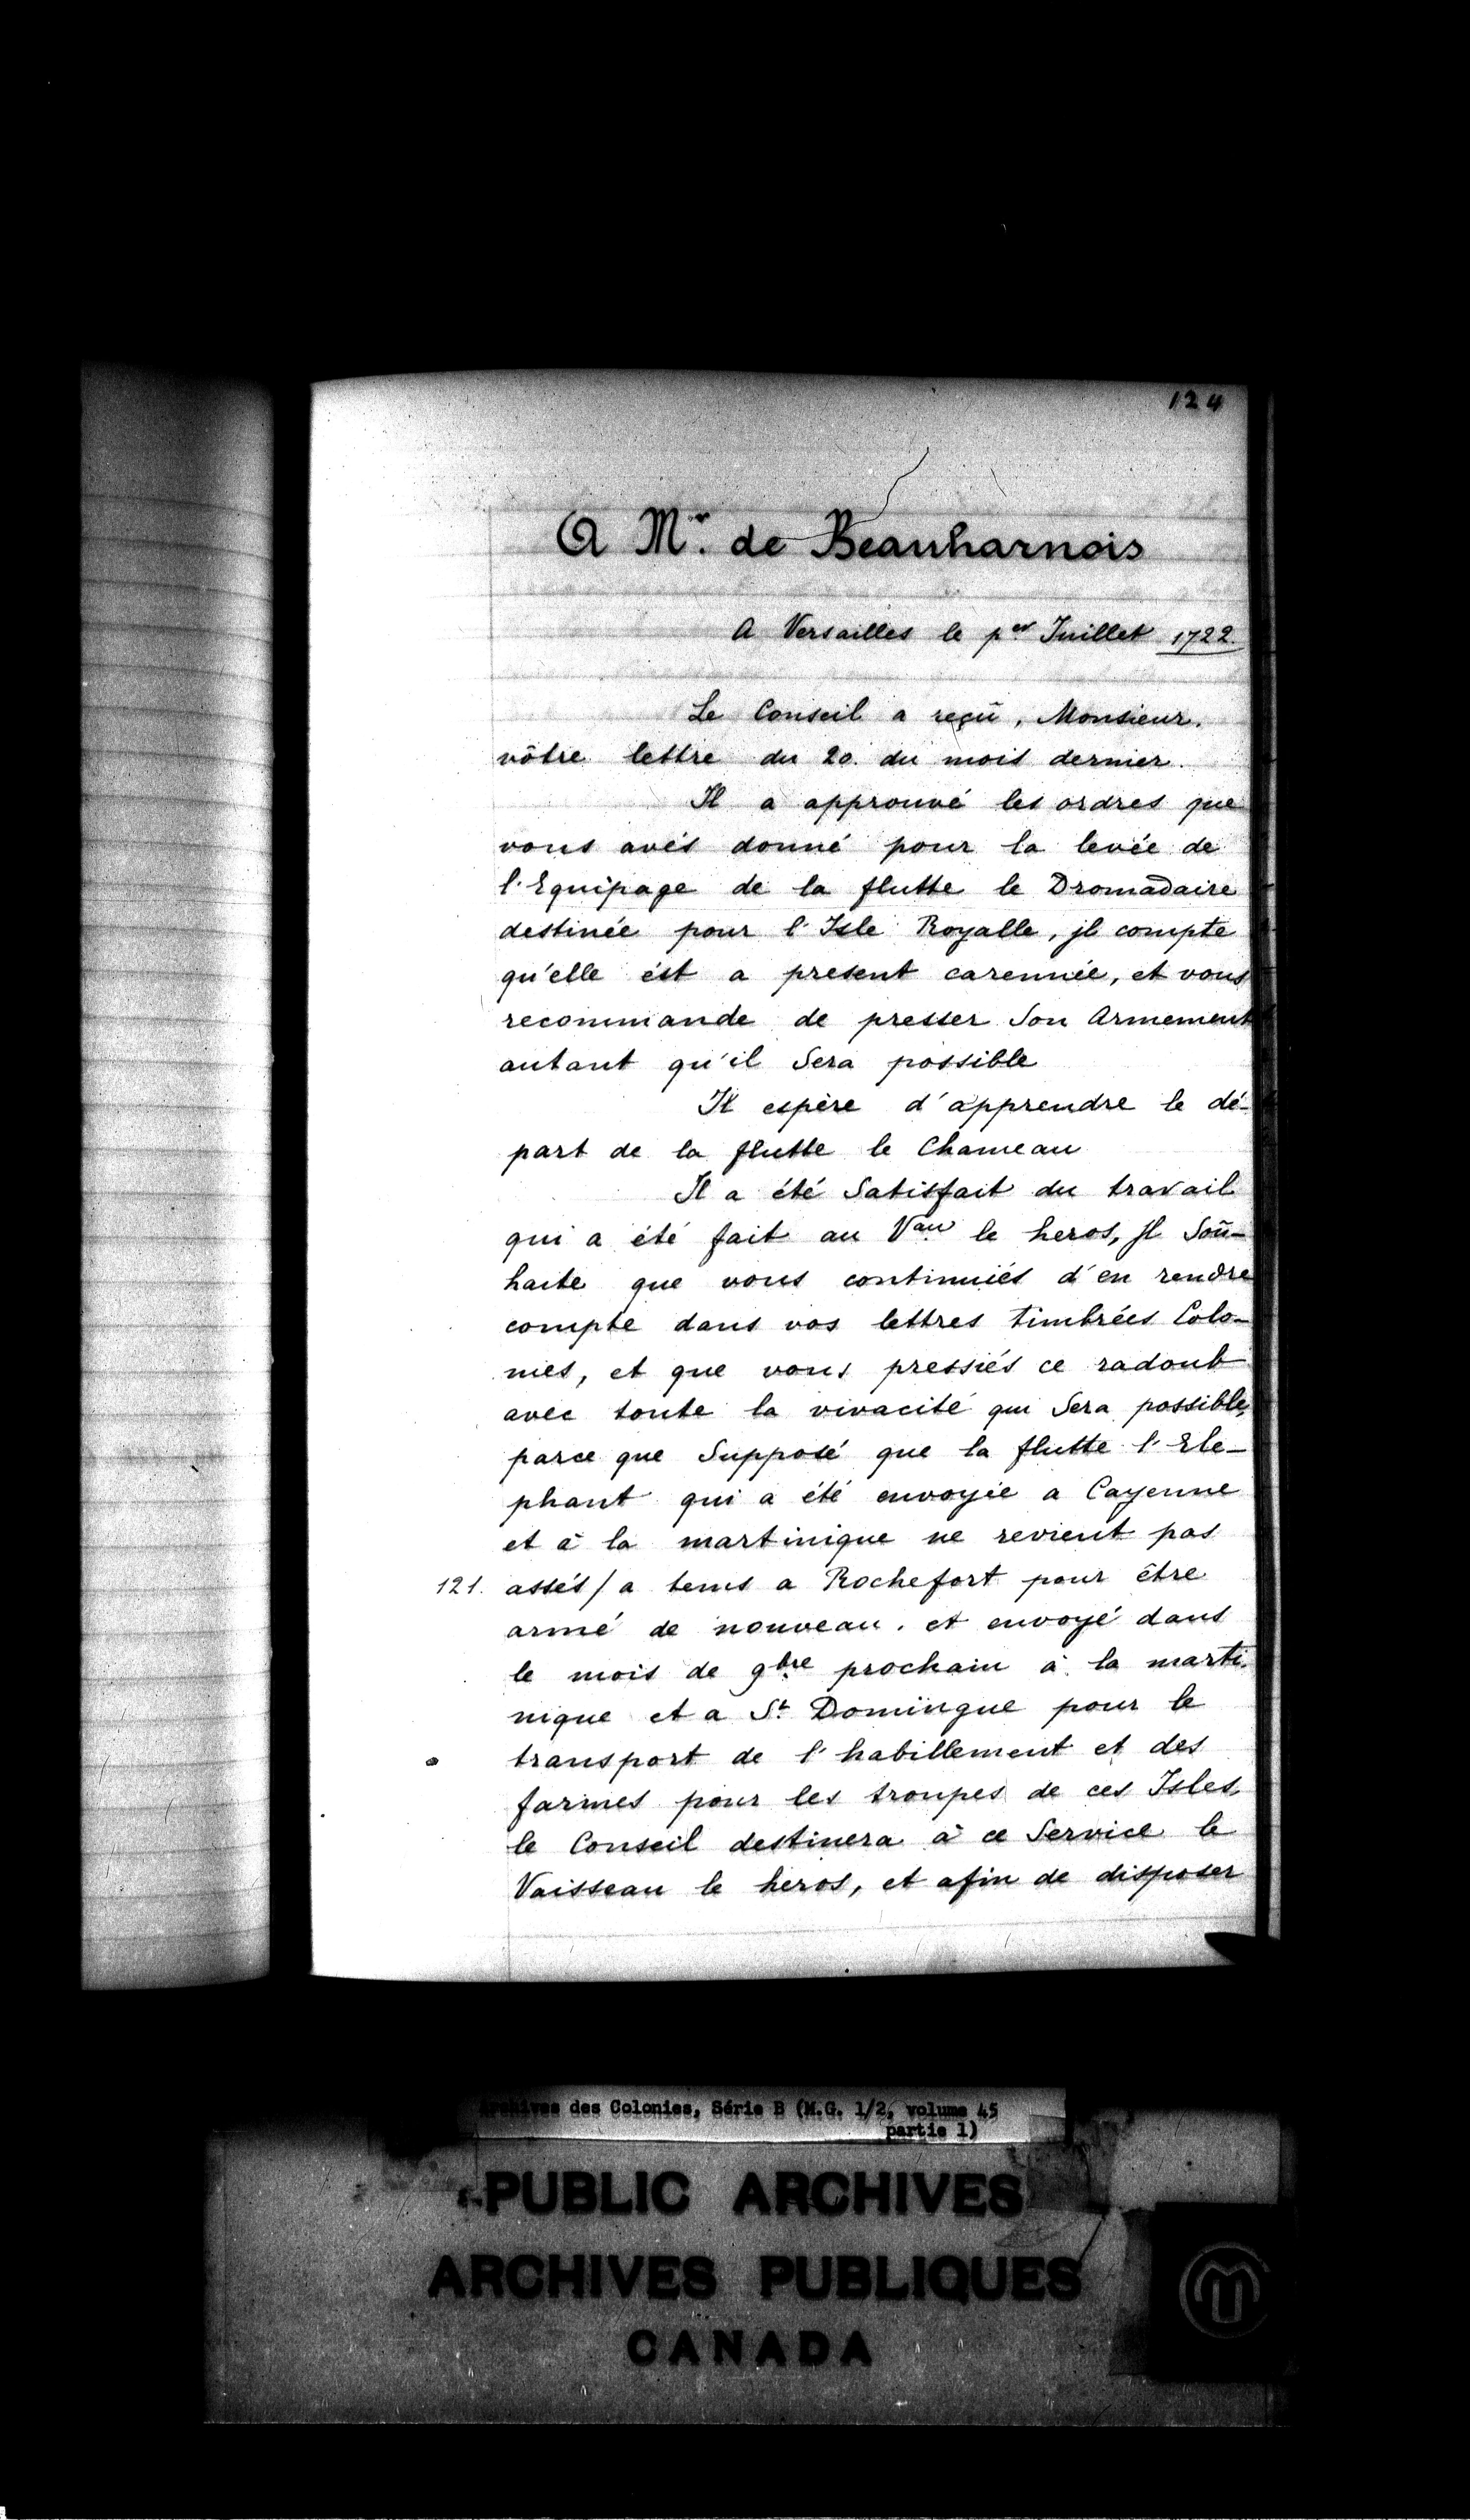 124
A Mr. de Beauharnois
A Versailles le per Juillet 1722.
Le Conseil a reçû, Monsieur.
vôtre lettre du 20. du mois dernier.
Il a approuvé les ordres que
vous avés donné pour la levée de
l'Equipage de la flutte le Dromadaire
destinée pour l'Isle Royalle, jl compte
qu'elle ést a present carennée, et vous
recommande de presser Son Armement
autant qu'il Sera possible
Il espère d'apprendre le dé-
part de la flutte le Chameau
Il a été Satisfait du travail
qui a été fait au Vau le heros, Jl Soû-
haite que vous continuiés d'en rendre
compte dans vos lettres timbrées Colo-
nies, et que vous pressiés ce radoub
avec toute la vivacité qui Sera possible,
parce que Supposé que la flutte l'Ele-
phant qui a été envoyée a Cayenne
et à la martinique ne revient pas
121. assés/a tems a Rochefort pour être
armé de nouveau. et envoyé dans
le mois de 9bre prochain à la marti-
nique et a St Domingue pour le
transport de l'habillement et des
farmes pour les troupes de ces Isles,
le Conseil destinera à ce Service le
Vaisseau le heros, et afin de disposer
Archives des Colonies, Série B (M.G. 1/2, volume 45
partie 1)
PUBLIC ARCHIVES
ARCHIVES PUBLIQUES
CANADA